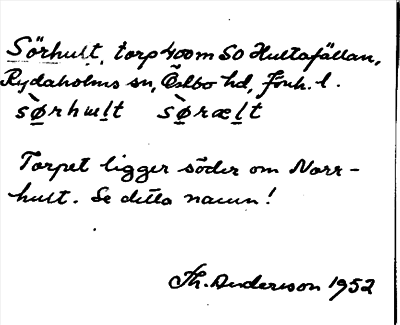 Sörhult, torp 400m SO Hultafällan,
Rydaholms sn, Östbo hd, Jönk. l.
sø̀rhɯḷt sø̀ræḷt
Torpet ligger söder om Norr-
hult. Se detta namn!
Th. Andersson 1952